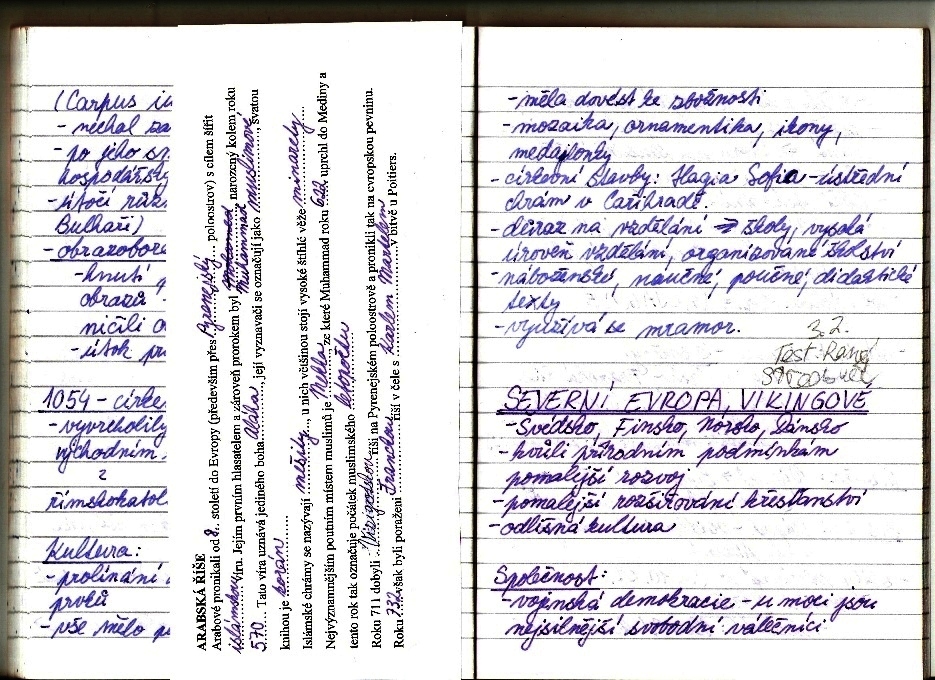 (Corpus iu
- nechal za
- po jeho sm
hospodářsky
- útočí
Bulhaři)
- obrazobore
- hnutí
obrazů
ničili o
- útok pr
1054 - círke
- vyvrcholily
východním
římskokatol
Kultura:
- prolínání
prvků
- vše mělo p
ARABSKÁ ŘÍŠE
Arabové pronikali od 8. století do Evropy (především přes Pyrenejský poloostrov) s cílem šířit
islámskou víru. Jejím prvním hlasatelem a zároveň prorokem byl Muhammad, narozený kolem roku
570. Tato víra uznává jediného boha Alláha, její vyznavači se označují jako muslimové, svatou
knihou je korán
Islámské chrámy se nazývají mešity, u nich většinou stojí vysoké štíhlé věže minarety
Nejvýznamnějším poutním místem muslimů je Mekka, ze které Muhammad roku 622 uprchl do Mediny a
tento rok tak označuje počátek muslimského letopočtu
Roku 711 dobyli Vizigótskou říši na Pyrenejském poloostrově a pronikli tak na evropskou pevninu.
Roku 732 však byli poraženi Franckou říší v čele s Karlem Martelem v bitvě u Poitiers.
- měla dovést ke zbožnosti
- mozaika, ornamentika, ikony,
medajlonky
- církevní stavby: Hagia Sofia - ústřední
chrám v Cařihradě.
- důraz na vzdělání => školy, vysoká
úroveň vzdělání, organizované školství
- náboženské, naučné, poučné, didaktické
texty
- využívá se mramor.
3.2.
Test: Raný
středověk
SEVERNÍ EVROPA, VIKINGOVÉ
- Švédsko, Finsko, Norsko, Dánsko
- kvůli přírodním podmínkám
pomalejší rozvoj
- pomalejší rozšiřování křesťanství
- odlišná kultura
Společnost:
- vojenská demokracie - u moci jsou
nejsilnější svobodní válečníci